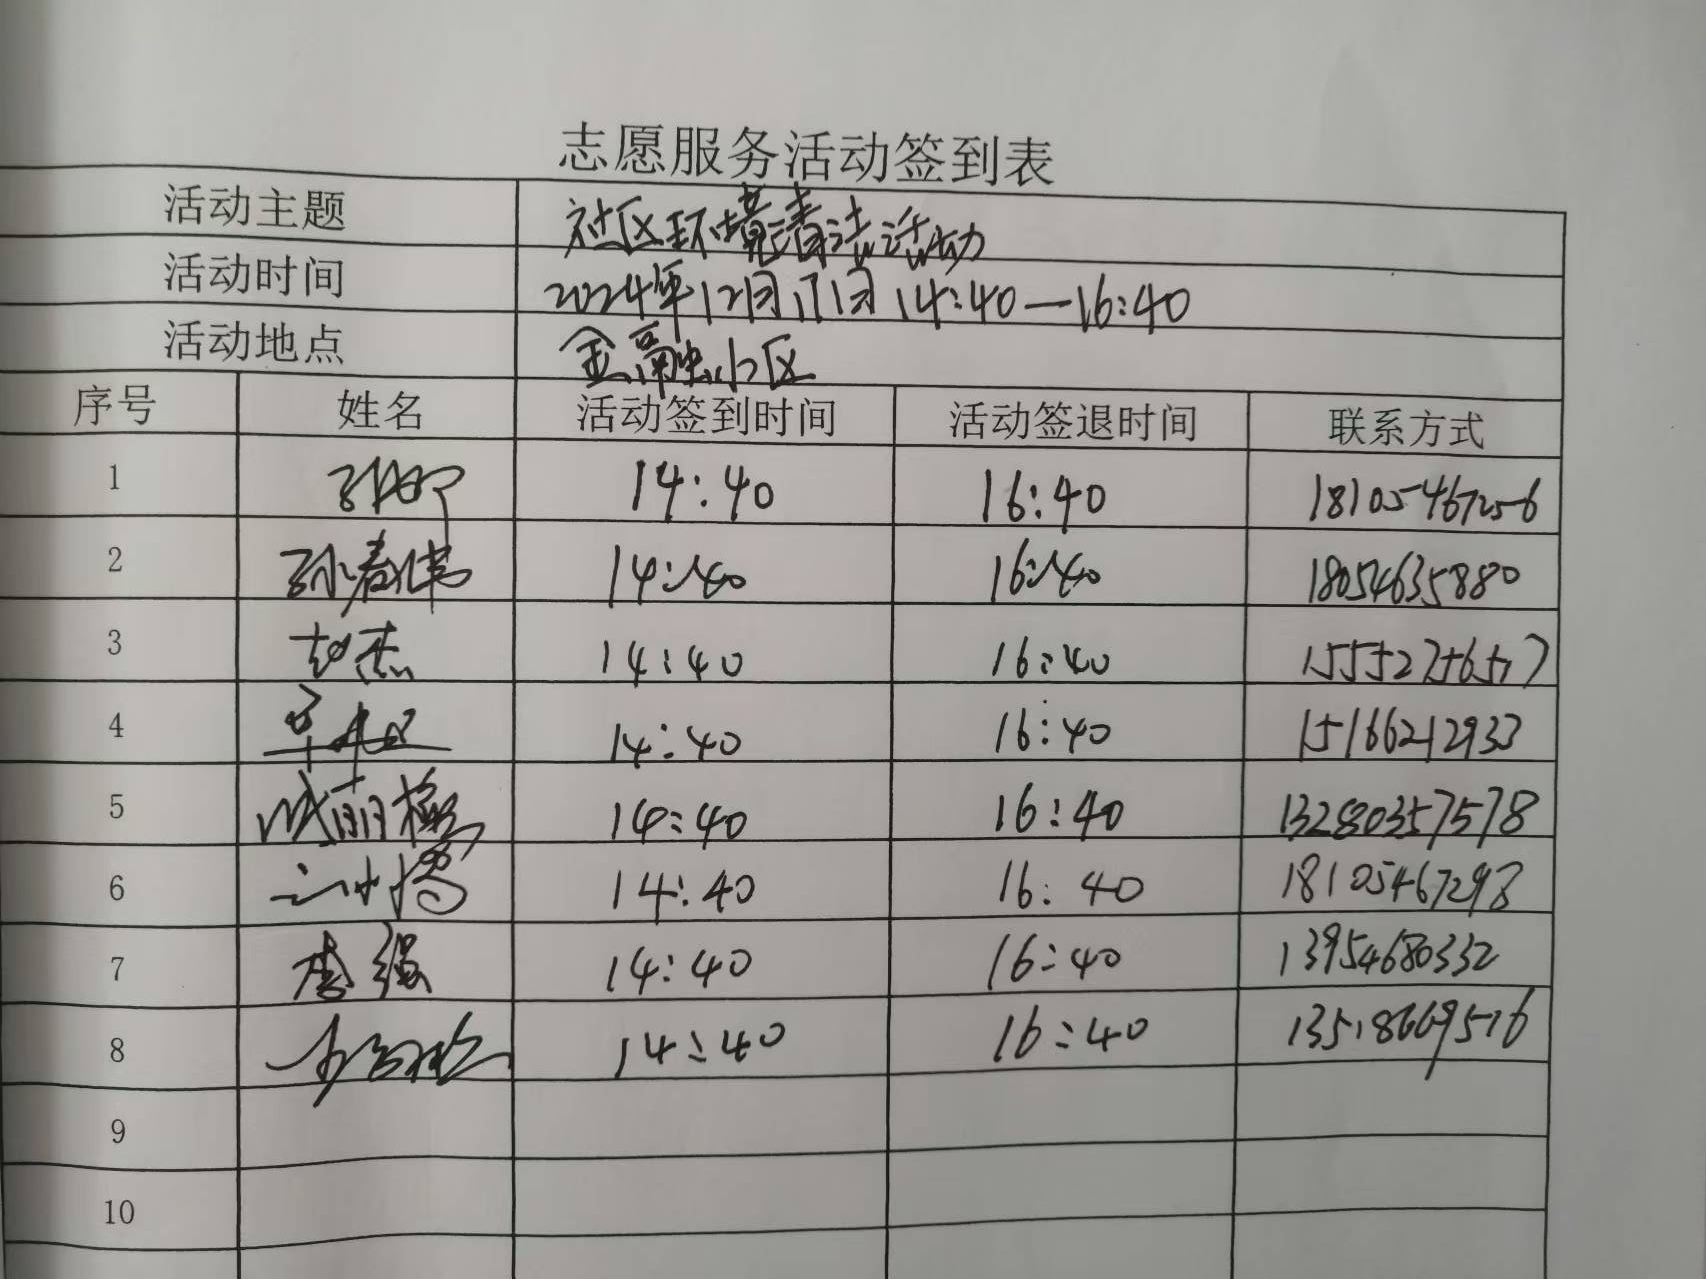 志愿服务活动签到表
活动主题 社区环境清洁活动
活动时间 2024年12月17日 14:40—16:40
活动地点 金融小区
序号 姓名 活动签到时间 活动签退时间 联系方式
1 14:40 16:40 18105467256
2 孙春伟 14:40 16:40 18054635880
3 赵杰 14:40 16:40 15552756577
4 14:40 16:40 15166212933
5 14:40 16:40 13280357578
6 14:40 16:40 18105467298
7 李强 14:40 16:40 13954680332
8 14:40 16:40 13518669516
9
10